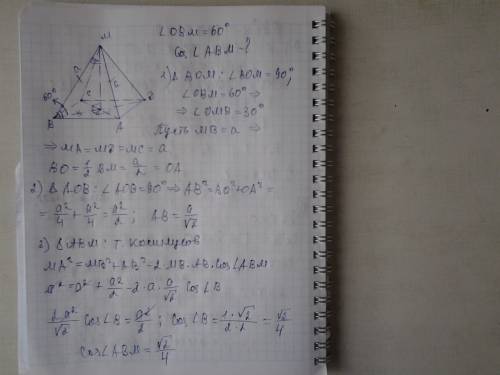 ∠OBM = 60°
Cos∠ABM - ?
1) Δ BOM: ∠BOM = 90°,
∠OBM = 60° ⇒
⇒ ∠OMB = 30°
Пусть MB = a ⇒
⇒ MA = MD = MC = a
BO = 1/2 BM = a/2 = OA
2) Δ AOB: ∠AOB = 90° ⇒ AB² = BO² + OA² =
= a²/4 + a²/4 = a²/2 ; AB = a/√2
3) Δ ABM: т. косинусов
MA² = MB² + AB² - 2·MB·AB·Cos∠ABM
a² = a² + a²/2 - 2·a·a/√2 Cos∠B
2a²/√2 Cos∠B = a²/2 ; Cos∠B = 1·√2/2·2 = √2/4
Cos∠ABM = √2/4
M
a
a
60°
B
C
A
O